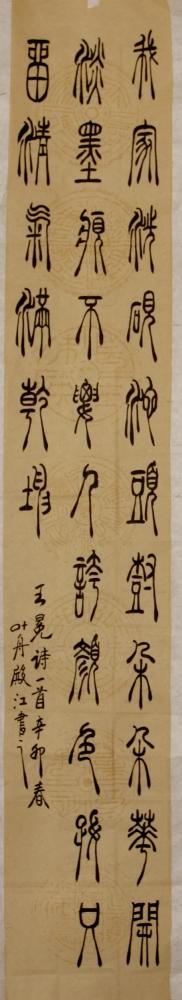 我家洗硯池頭樹朵朵華開
淡墨痕不要人誇顏色好只
留清氣滿乾坤
王冕詩一首辛卯春
叶舟殿江書之